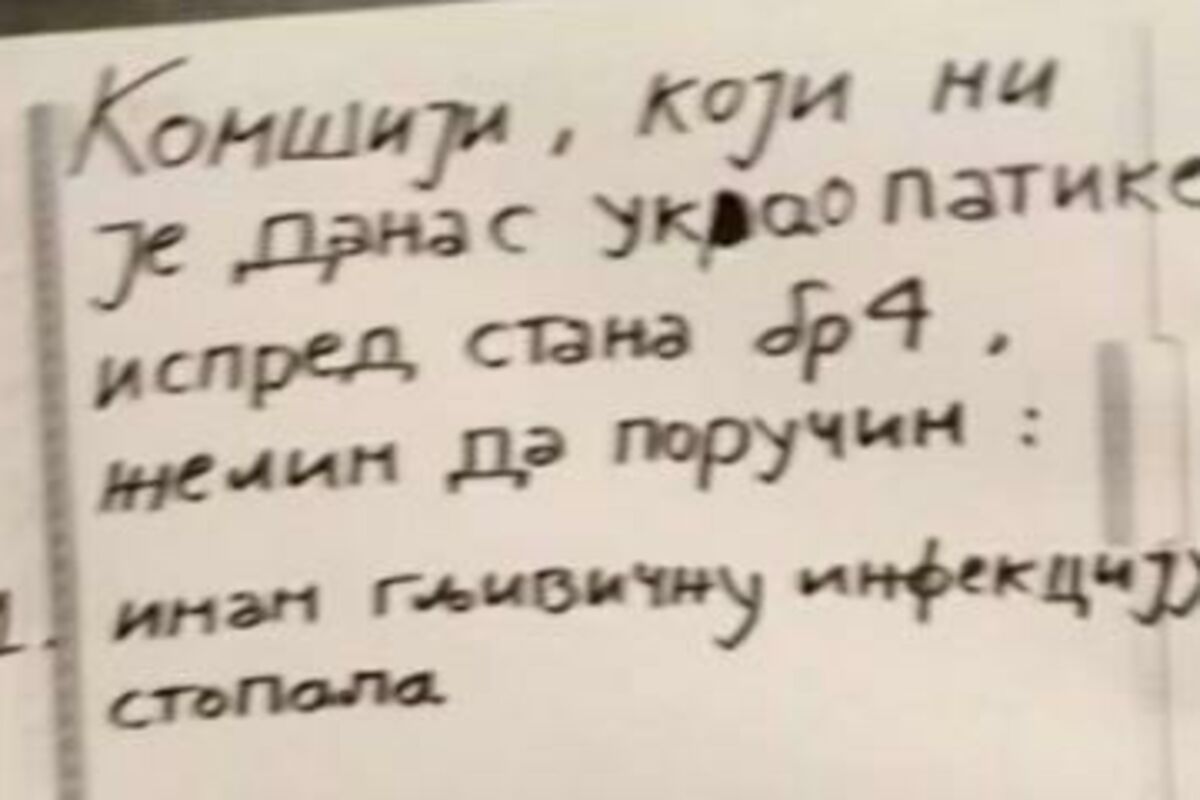 Комшији, који ми
је данас украо патике
испред стана бр 4,
желим да поручим:
1. имам гљивичну инфекцију
стопала